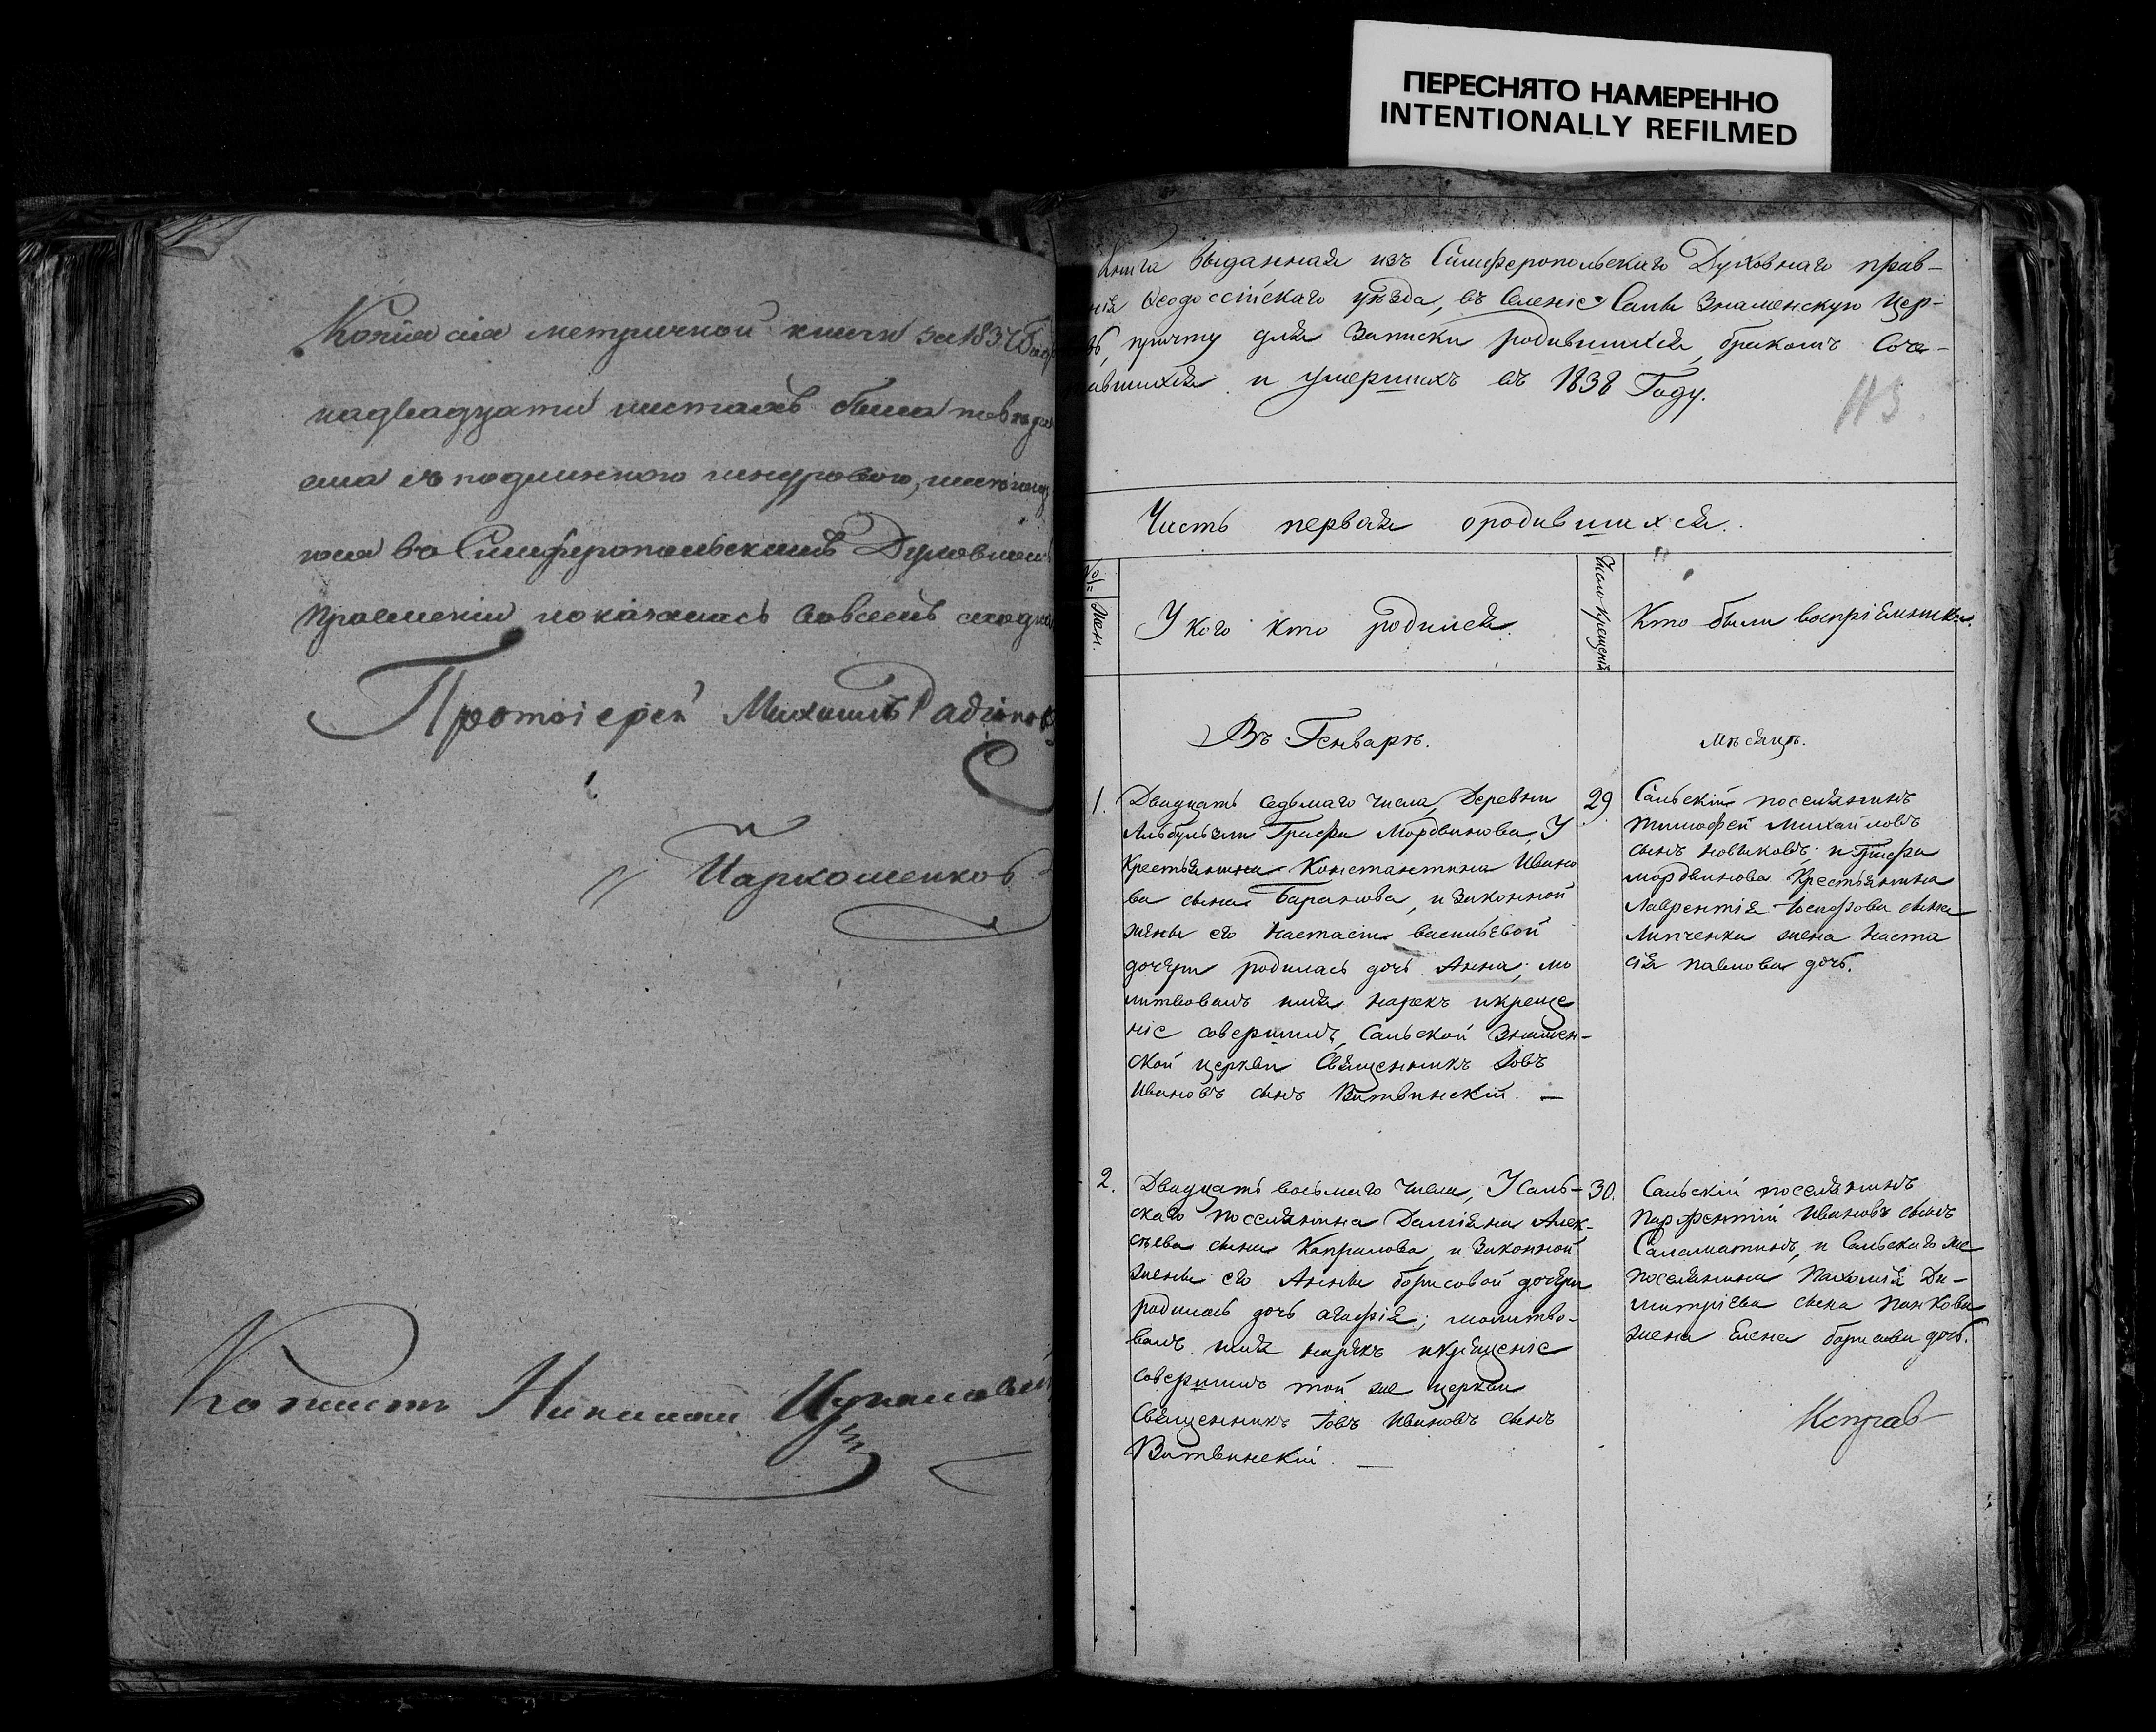 ПЕРЕСНЯТО НАМЕРЕННО
INTENTIONALLY REFILMED
Копiя сiя метричной книги за 1837 Годъ
надвадцати листахъ была повѣре
ена съ подлинною шнуровою, и
въ Симферопольскомъ Духовномъ
Правленiи и оказалась вовсемъ сходна
Протоiерей Михаилъ Радiонов
Копiистъ Николай
Книга Выданная изъ Симферопольскаго Духовнаго прав-
нiя Ѳеодоссiйскаго уѣзда, въ Селенiе Салы Знаменскую Цер-
вь, причту для Записки родившихся, бракомъ Соче-
авшихся и умершихъ въ 1838 Году.
113
Часть первая ородившихся.
№
Жен.
У кого кто родился.
Число крещенiя
Кто были воспрiемники.
Въ Генварѣ.
Мѣсяцѣ.
1.
Двадцать седьмаго числа, Деревни
Графа Мордвинова, У
Крестьянина Константина Ивано
ва сына Баранова, и Законной
жены его Настасiи васильевой
дочери родилась дочь Анна; мо
литвовалъ имя нарекъ икреще
нiе совершилъ, Сальской Знамен-
ской церкви Священникъ Iовъ
Ивановъ сынъ Витвинскiй. —
29.
Сальскiй поселянинъ
тимофей Михайловъ
сынъ новиковъ; и Графа
мордвинова Крестьянина
Лаврентiя Iосифова сына
Липченка жена Наста
сiя павлова дочь.
2.
Двадцать восьмаго числа, У Саль-
скаго поселянина Дамiана Алек-
сѣева сына Капралова, и Законной
жены его Анны борисовой дочери
родилась дочь агафiя; молитво-
валъ имя нарекъ икрещенiе
совершилъ той же церкви
Священникъ Iовъ Ивановъ сынъ
Витвинскiй. —
30.
Сальскiй поселянинъ
Парфентiй Ивановъ сынъ
Саламатинъ, и Сальскаго же
поселянина Пахомiя Ди-
митрiева сына панкова
жена Елена борисова дочь.